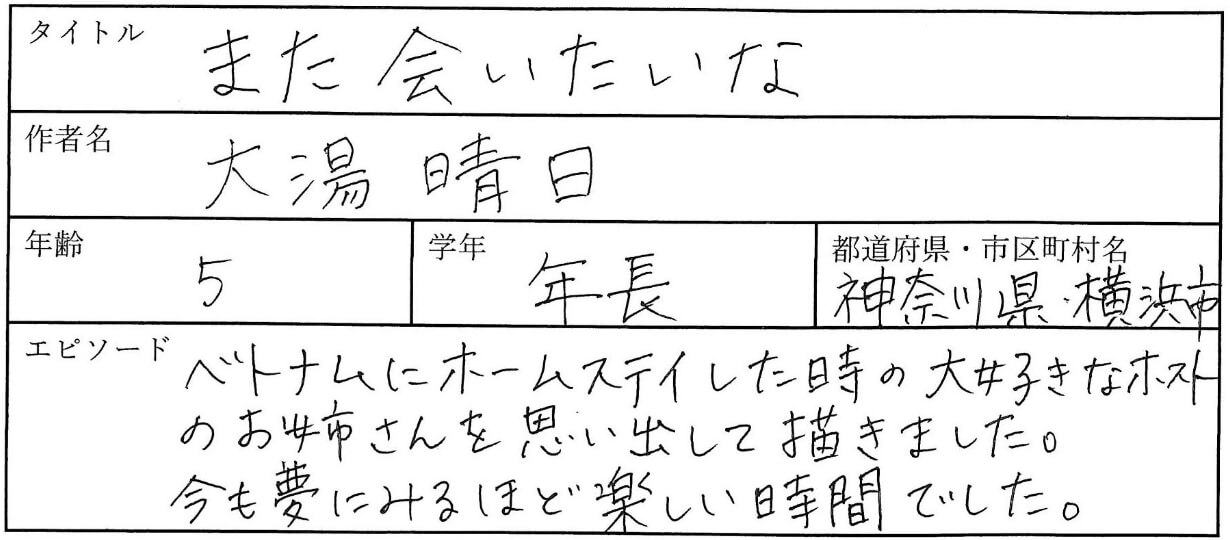 タイトル
また会いたいな
作者名
大湯 晴日
年齢
5
学年
年長
都道府県・市区町村名
神奈川県・横浜市
エピソード
ベトナムにホームステイした時の大好きなホスト
のお姉さんを思い出して描きました。
今も夢にみるほど楽しい時間でした。